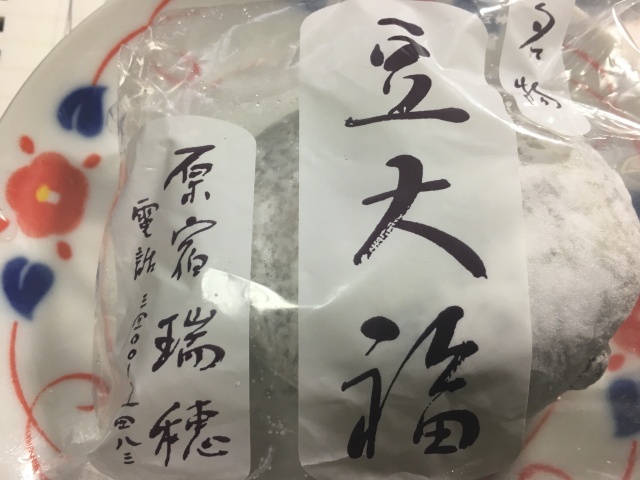 名物
豆大福
原宿 瑞穂
電話 三四〇〇-五四八三